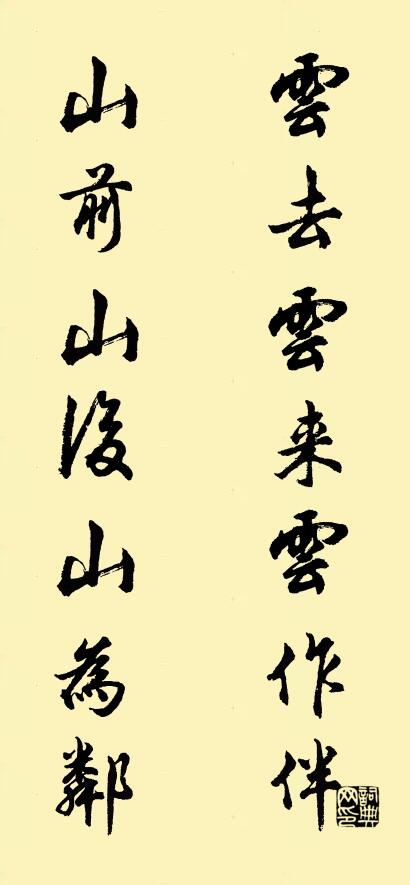 雲去雲来雲作伴
山前山後山為鄰
詞典網印